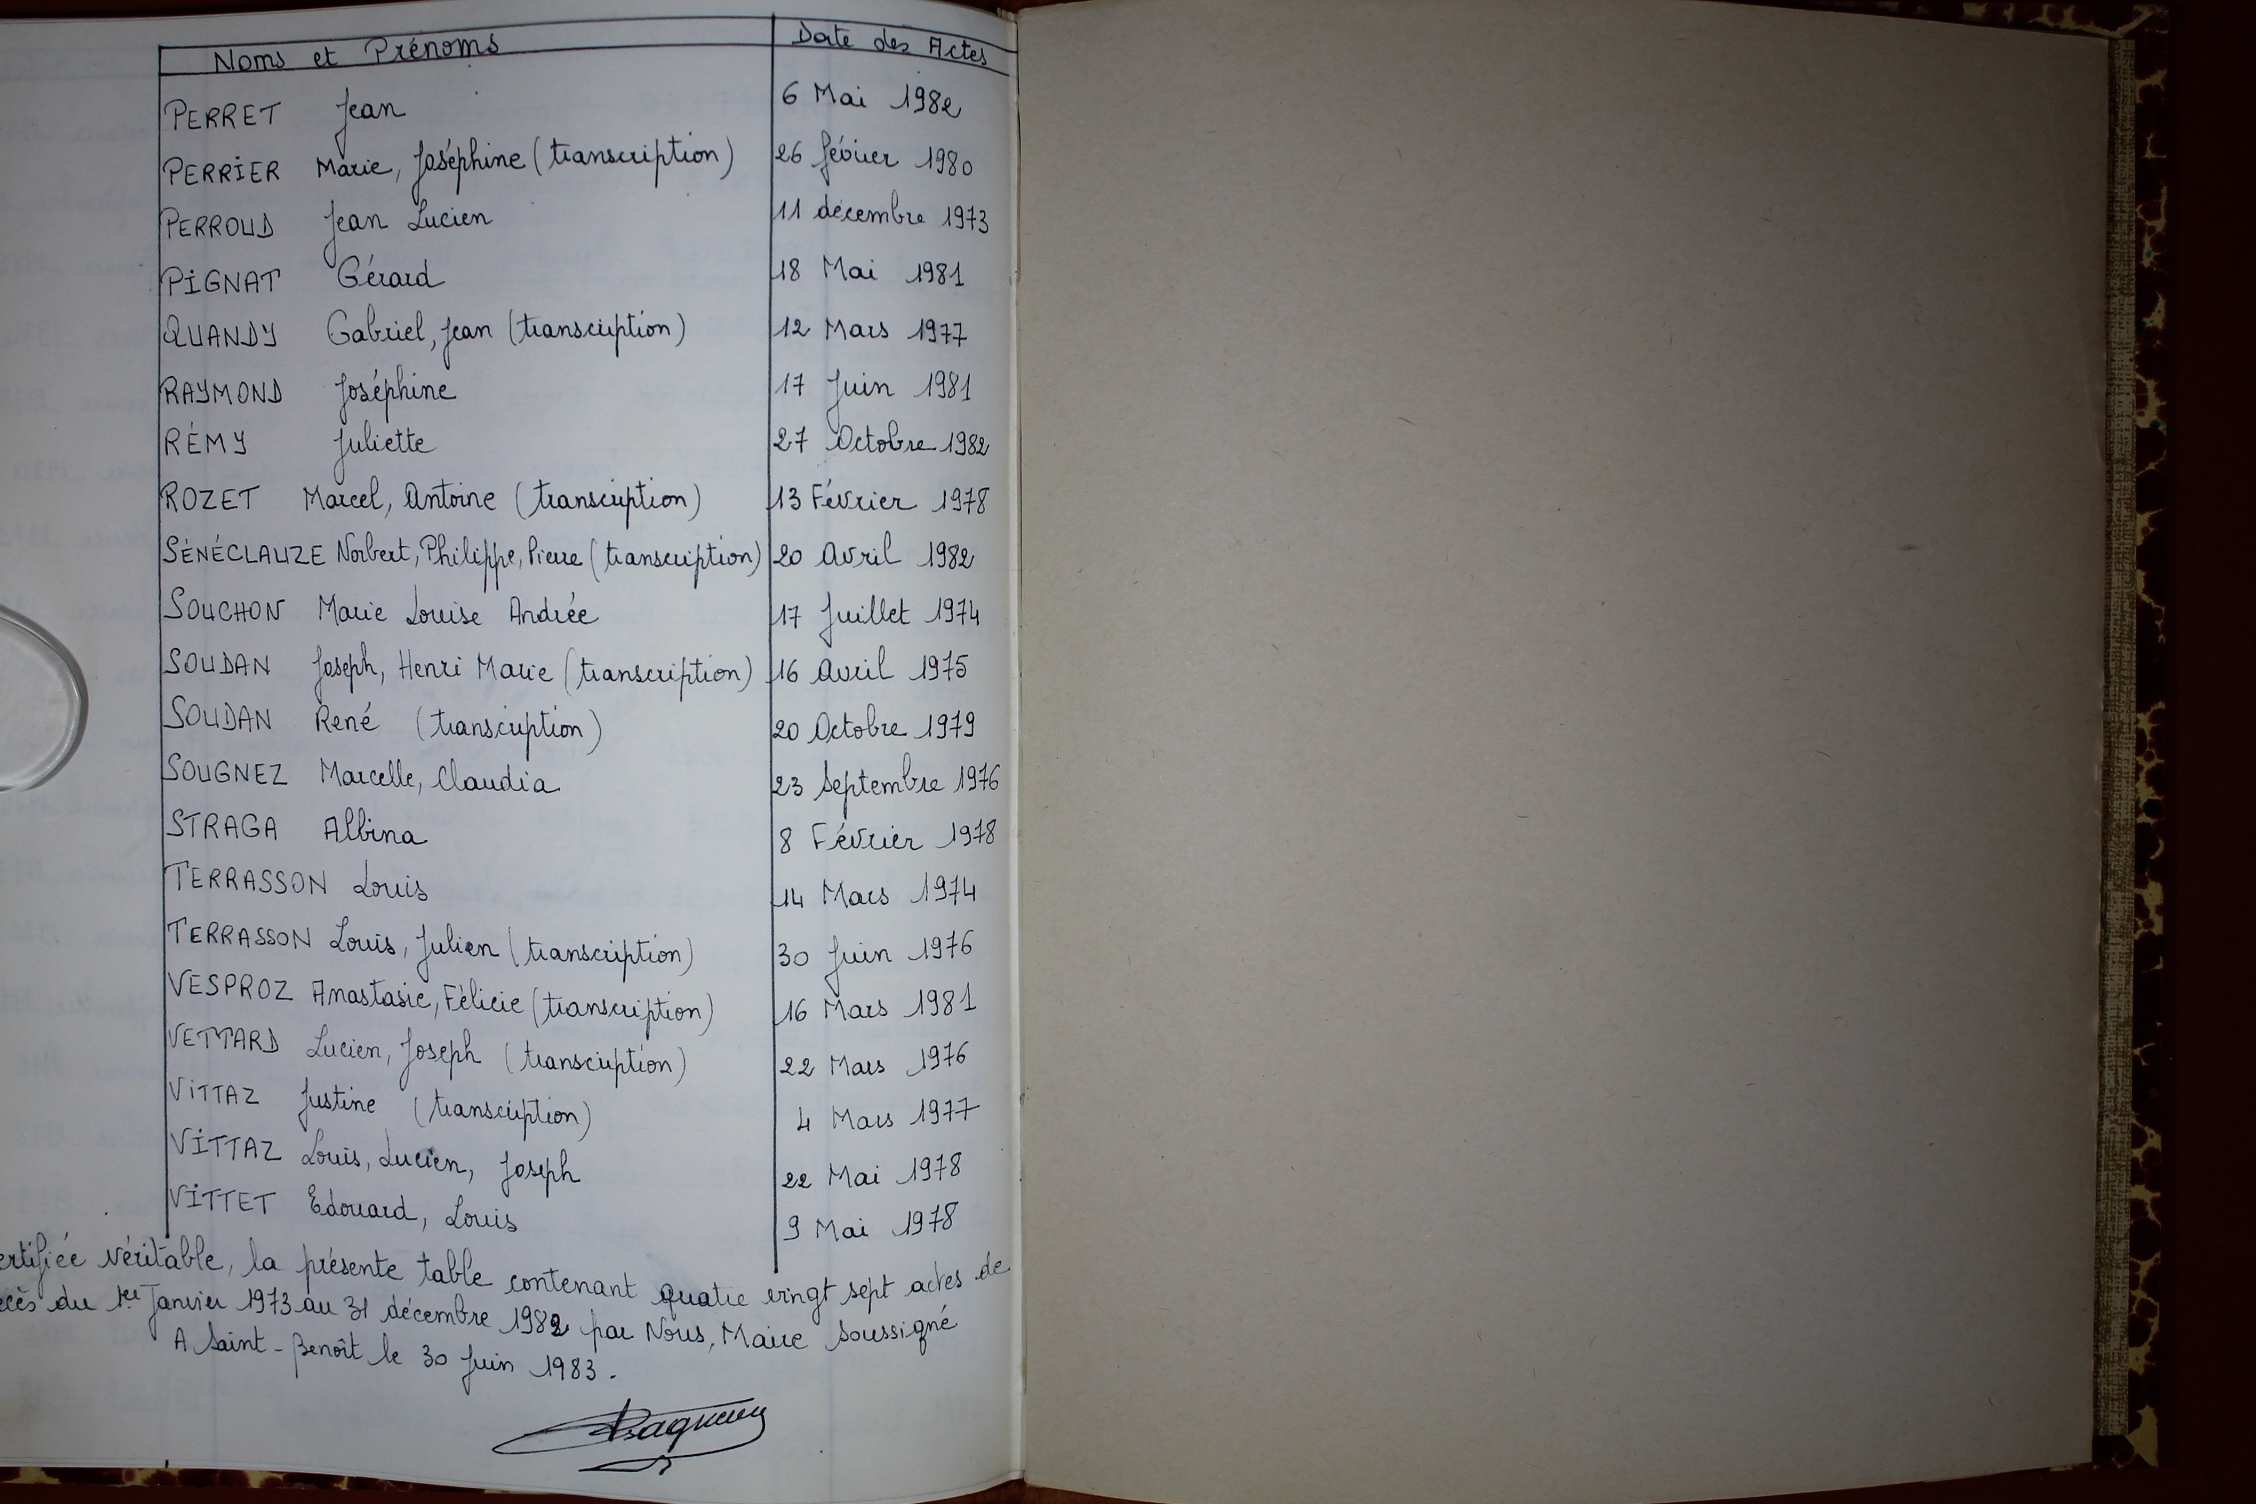 Noms et Prénoms Date des Actes
PERRET Jean 6 Mai 1982
PERRIER Marie, Joséphine (transcription) 26 février 1980
PERROUD Jean Lucien 11 décembre 1973
PIGNAT Gérard 18 Mai 1981
QUANDY Gabriel, Jean (transcription) 12 Mars 1977
RAYMOND Joséphine 17 Juin 1981
RÉMY Juliette 27 Octobre 1982
ROZET Marcel, Antoine (transcription) 13 Février 1978
SÉNÉCLAUZE Norbert, Philippe, Pierre (transcription) 20 Avril 1982
SOUCHON Marie Louise Andrée 17 Juillet 1974
SOUDAN Joseph, Henri Marie (transcription) 16 Avril 1975
SOUDAN René (transcription) 20 Octobre 1979
SOUGNEZ Marcelle, Claudia 23 Septembre 1976
STRAGA Albina 8 Février 1978
TERRASSON Louis 14 Mars 1974
TERRASSON Louis, Julien (transcription) 30 Juin 1976
VESPROZ Anastasie, Félicie (transcription) 16 Mars 1981
VETTARD Lucien, Joseph (transcription) 22 Mars 1976
VITTAZ Justine (transcription) 4 Mars 1977
VITTAZ Louis, Lucien, Joseph 22 Mai 1978
VITTET Edouard, Louis 9 Mai 1978
ertifiée véritable, la présente table contenant quatre vingt sept actes de
écès du 1er Janvier 1973 au 31 décembre 1982 par Nous, Maire soussigné
A Saint-Benoît le 30 Juin 1983.